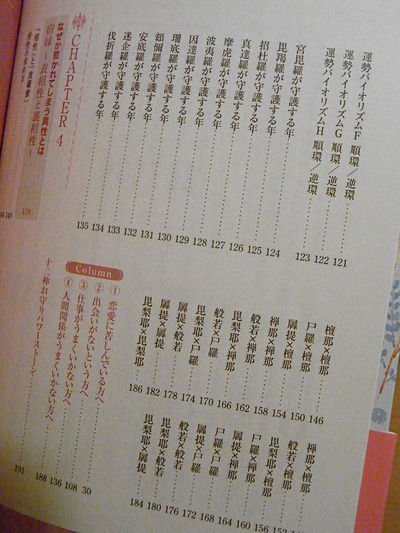 運勢バイオリズムF 順環／逆環 121
運勢バイオリズムG 順環／逆環 122
運勢バイオリズムH 順環／逆環 123
宮毘羅が守護する年 124
毘羯羅が守護する年 125
招杜羅が守護する年 126
真達羅が守護する年 127
摩虎羅が守護する年 128
波夷羅が守護する年 129
因達羅が守護する年 130
珊底羅が守護する年 131
頞儞羅が守護する年 132
安底羅が守護する年 133
迷企羅が守護する年 134
伐折羅が守護する年 135
CHAPTER 4
なぜか惹かれてしまう異性とは
宿縁～表相性と裏相性～
139
檀那×檀那 146
尸羅×檀那 150
羼提×檀那 154
禅那×禅那 158
般若×禅那 162
毘梨耶×禅那 166
般若×尸羅 170
毘梨耶×尸羅 174
羼提×般若 178
毘梨耶×羼提 182
毘梨耶×毘梨耶 186
禅那×檀那
般若×檀那
毘梨耶×檀那 156
尸羅×禅那 160
羼提×禅那 164
尸羅×尸羅 168
羼提×尸羅 172
般若×般若 176
毘梨耶×般若 180
毘梨耶×羼提 184
Column
① 恋愛に苦しんでいる方へ 30
② 出会いがないという方へ 108
③ 仕事がうまくいかない方へ 136
④ 人間関係がうまくいかない方へ 188
十二神お守りパワーストーン 191